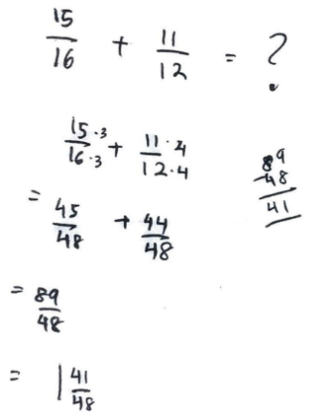 15/16 + 11/12 = ?
15·3/16·3 + 11·4/12·4
= 45/48 + 44/48
= 89/48
= 1 41/48
89
-48
41